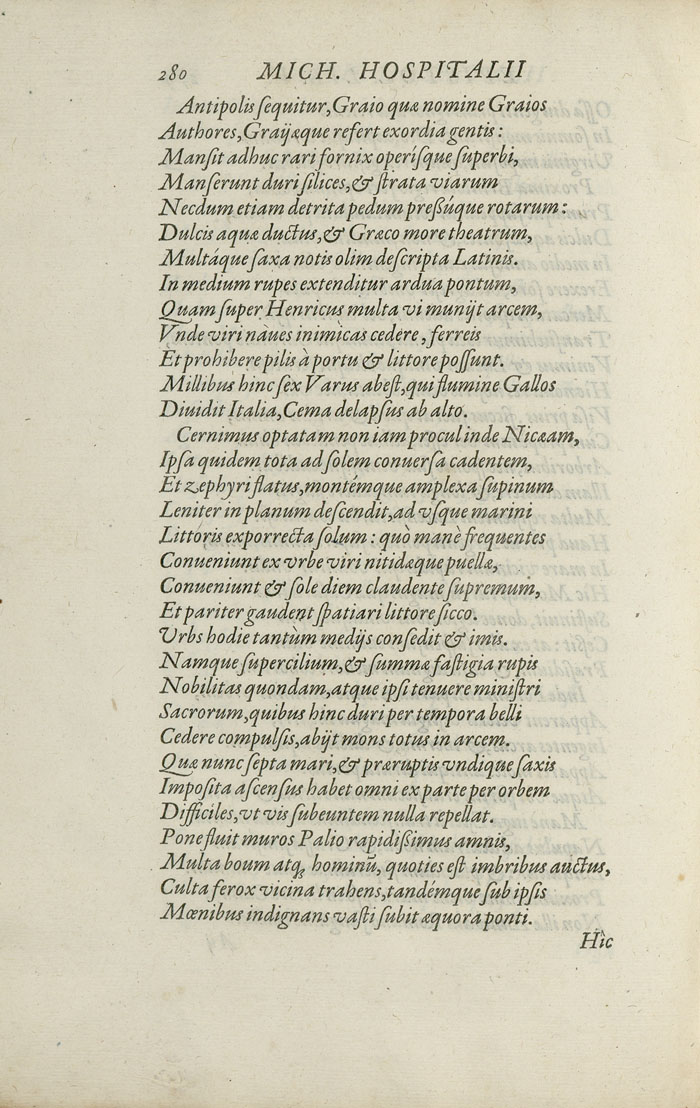 280 MICH. HOSPITALII
Antipolis ſequitur, Graio quæ nomine Graios
Authores, Graijæque refert exordia gentis:
Manſit adhuc rari fornix operíſque ſuperbi,
Manſerunt duri ſilices, & ſtrata viarum
Necdum etiam detrita pedum preßúque rotarum:
Dulcis aquæ ductus, & Græco more theatrum,
Multáque ſaxa notis olim deſcripta Latinis.
In medium rupes extenditur ardua pontum,
Quam ſuper Henricus multa vi munijt arcem,
Vnde viri nàues inimìcas cedere, ferreis
Et prohibere pilis à portu & littore poſſunt.
Millibus hinc ſex Varus abeſt, qui flumine Gallos
Diuidit Italia, Cema delapſus ab alto.
Cernimus optatam non iam procul inde Nicæam,
Ipſa quidem tota ad ſolem conuerſa cadentem,
Et zephyri flatus, montémque amplexa ſupinum
Leniter in planum deſcendit, ad vſque marini
Littoris exporrecta ſolum: quò manè frequentes
Conueniunt ex vrbe viri nitidæque puellæ,
Conueniunt & ſole diem claudente ſupremum,
Et pariter gaudent ſpatiari littore ſicco.
Vrbs hodie tantùm medijs conſedit & imis.
Namque ſupercilium, & ſummæ faſtigia rupis
Nobilitas quondam, atque ipſi tenuere miniſtri
Sacrorum, quibus hinc duri per tempora belli
Cedere compulſis, abijt mons totus in arcem.
Quæ nunc ſepta mari, & præruptis vndique ſaxis
Impoſita aſcenſus habet omni ex parte per orbem
Difficiles, vt vis ſubeuntem nulla repellat.
Pone fluit muros Palio rapidißimus amnis,
Multa boum atq; hominũ, quoties eſt imbribus auctus,
Culta ferox vicina trahens, tandémque ſub ipſis
Mœnibus indignans vaſti ſubit æquora ponti.
Hîc